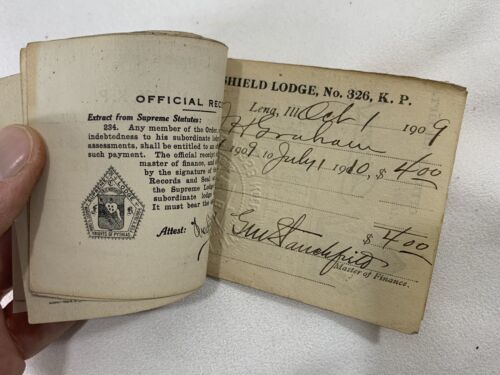 OFFICIAL REC
Extract from Supreme Statutes:
234. Any member of the Order,
indebtedness to his subordinate lodge
assessments, shall be entitled to an of
such payment. The official receipt
master of finance, and
by the signature of the
Records and Seal
the Supreme Lodge
subordinate lodge
It must bear the
Attest:
KNIGHTS OF PYTHIAS
SHIELD LODGE, No. 326, K. P.
Lena, Ill. Oct 1 1909
Graham
1909 to July 1 1910, $ 4.00
$ 4.00
Geo Stauchfield
Master of Finance.